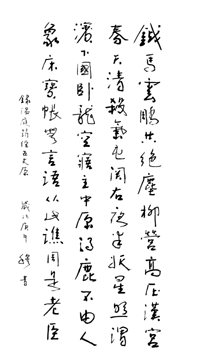 鐵馬雲雕共絕塵柳營高壓漢宮
春天清殺氣屯關右夜半妖星照渭
濱下國臥龍空寤主中原得鹿不由人
象床寶帳無言語從此譙周是老臣
錄溫庭筠經五丈原 歲次庚午 書